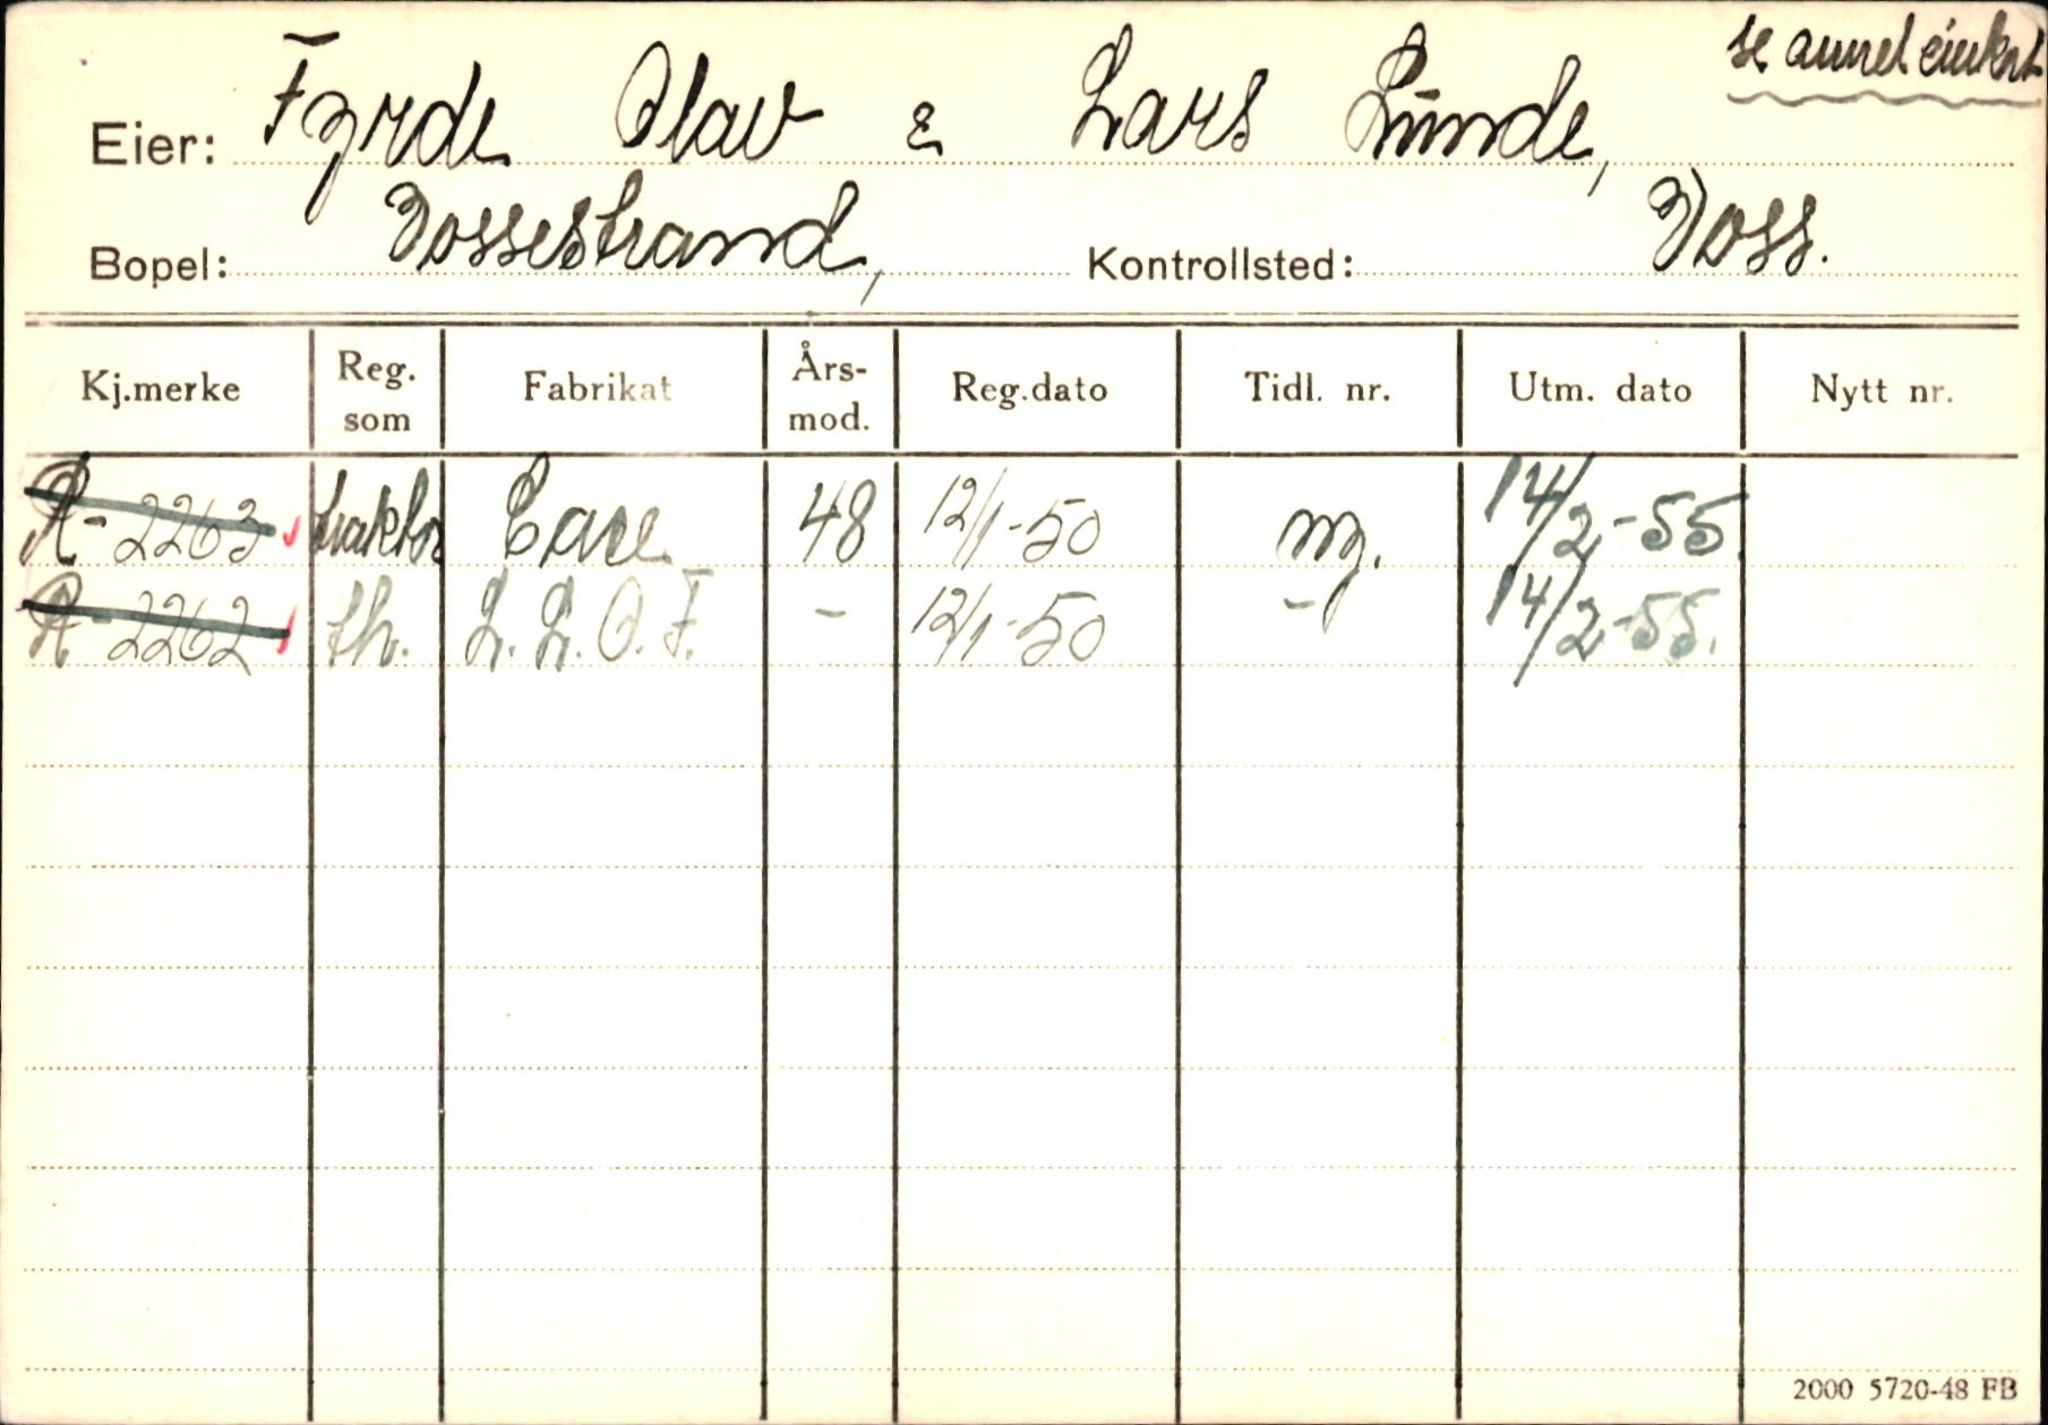 se annet einkort
Eier: Fyrde Olav & Lars Lunde,
Bopel: Vossestrand, Kontrollsted: Voss.
Kj.merke Reg. som Fabrikat Års-mod. Reg.dato Tidl. nr. Utm. dato Nytt nr.
R-2263 traktor Case 48 12/1-50 ny. 14/2-55.
R-2262 th. L.L.O.F. - 12/1-50 - 14/2-55.
2000 5720-48 FB